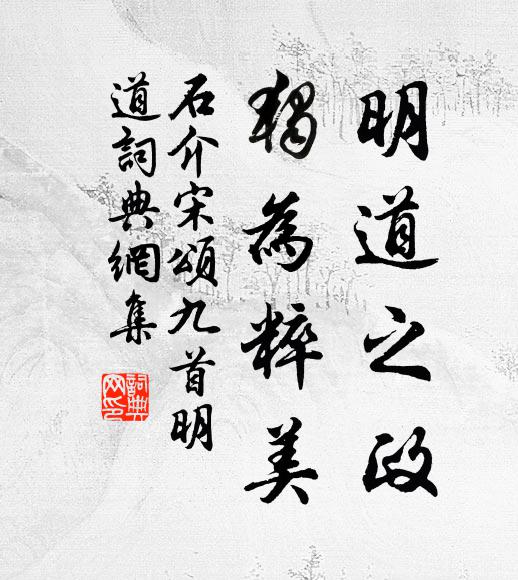 明道之政
獨為粹美
石介宋頌九首明
道詞典網集
詞典
网印